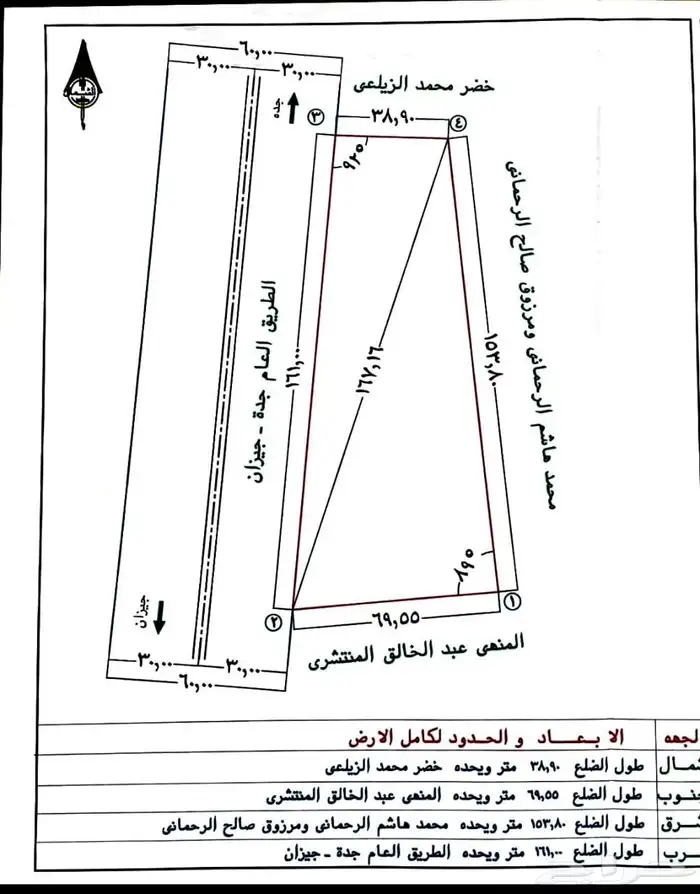 ٦٠,٠٠
٣٠,٠٠
٣٠,٠٠
خضر محمد الزيلعى
الشمال
جده
٣
٣٨,٩٠
٤
٩٢٥
محمد هاشم الرحمانى ومرزوق صالح الرحمانى
الطريق العام جدة - جيزان
١٦١,٠٠
١٦٧,١٦
١٥٣,٨٠
٨٩٥
جيزان
٢
١
٦٩,٥٥
المنهى عبد الخالق المنتشرى
٣٠,٠٠
٣٠,٠٠
٦٠,٠٠
لجهه الابعاد و الحدود لكامل الارض
شمال طول الضلع ٣٨,٩٠ متر ويحده خضر محمد الزيلعى
نوب طول الضلع ٦٩,٥٥ متر ويحده المنهى عبد الخالق المنتشرى
شرق طول الضلع ١٥٣,٨٠ متر ويحده محمد هاشم الرحمانى ومرزوق صالح الرحمانى
رب طول الضلع ١٦١,٠٠ متر ويحده الطريق العام جدة - جيزان